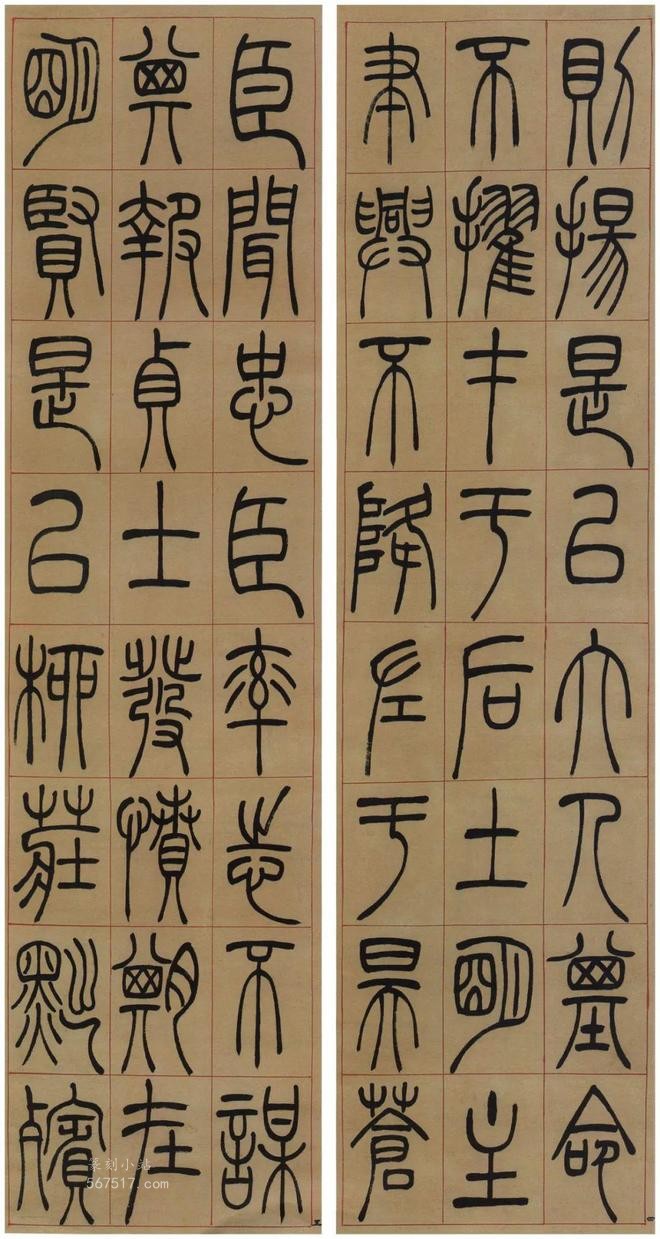 則揚是以大人基命
不擢才于后土明主
聿興不降左于昊蒼
臣聞忠臣率志不謀
其報貞士發憤期在
明賢是以柳莊黜殯
篆刻小站
567517.com